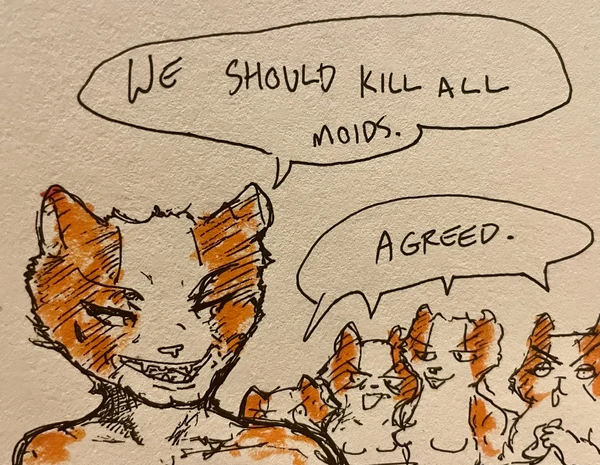 WE SHOULD KILL ALL
MOIDS.
AGREED.